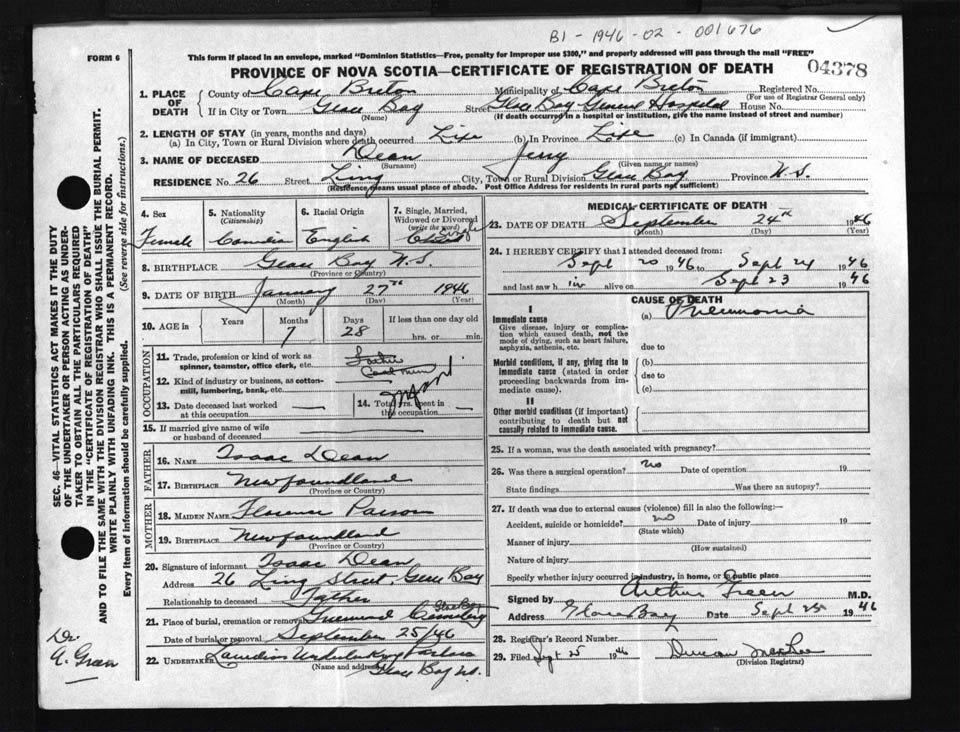 B1 - 1946 - 02 - 001676
FORM 6
This form if placed in an envelope, marked "Dominion Statistics—Free, penalty for improper use $300," and properly addressed will pass through the mail "FREE"
PROVINCE OF NOVA SCOTIA—CERTIFICATE OF REGISTRATION OF DEATH
04378
SEC. 46—VITAL STATISTICS ACT MAKES IT THE DUTY
OF THE UNDERTAKER OR PERSON ACTING AS UNDER-
TAKER TO OBTAIN ALL THE PARTICULARS REQUIRED
IN THE "CERTIFICATE OF REGISTRATION OF DEATH"
AND TO FILE THE SAME WITH THE DIVISION REGISTRAR WHO SHALL ISSUE THE BURIAL PERMIT.
WRITE PLAINLY WITH UNFADING INK. THIS IS A PERMANENT RECORD.
Every item of information should be carefully supplied. (See reverse side for instructions.)
1. PLACE OF DEATH
County of Cape Breton Municipality of Cape Breton Registered No.
(For use of Registrar General only)
If in City or Town Glace Bay Street Glace Bay General Hospital House No.
(Name) (If death occurred in a hospital or institution, give the name instead of street and number)
2. LENGTH OF STAY (in years, months and days)
(a) In City, Town or Rural Division where death occurred Life (b) In Province Life (c) In Canada (if immigrant)
3. NAME OF DECEASED Dean Jerry
(Surname) (Given name or names)
RESIDENCE No. 26 Street Ling City, Town or Rural Division Glace Bay Province N.S.
(Residence means usual place of abode. Post Office Address for residents in rural parts not sufficient)
4. Sex Female
5. Nationality (Citizenship) Canadian
6. Racial Origin English
7. Single, Married, Widowed or Divorced (write the word) Single
8. BIRTHPLACE Glace Bay N.S.
(Province or Country)
9. DATE OF BIRTH January 27th 1946
(Month) (Day) (Year)
10. AGE in Years Months Days If less than one day old
7 28 hrs. or min.
OCCUPATION
11. Trade, profession or kind of work as spinner, teamster, office clerk, etc.
12. Kind of industry or business, as cotton-mill, lumbering, bank, etc.
13. Date deceased last worked at this occupation
14. Total yrs. spent in this occupation
15. If married give name of wife or husband of deceased
FATHER
16. NAME Isaac Dean
17. BIRTHPLACE Newfoundland
(Province or Country)
MOTHER
18. MAIDEN NAME Florence Parson
19. BIRTHPLACE Newfoundland
(Province or Country)
20. Signature of informant Isaac Dean
Address 26 Ling Street Glace Bay
Relationship to deceased Father
21. Place of burial, cremation or removal Greenwood Cemetery Glace Bay
Date of burial or removal September 25/46
22. UNDERTAKER Undertaking Parlors
(Name and address) Glace Bay N.S.
MEDICAL CERTIFICATE OF DEATH
23. DATE OF DEATH September 24th 1946
(Month) (Day) (Year)
24. I HEREBY CERTIFY that I attended deceased from:
Sept 20 1946 to Sept 24 1946
and last saw h im alive on Sept 23 1946
CAUSE OF DEATH
I
Immediate cause (a) Pneumonia
Give disease, injury or complication which caused death, not the mode of dying, such as heart failure, asphyxia, asthenia, etc.
due to
Morbid conditions, if any, giving rise to immediate cause (stated in order proceeding backwards from immediate cause).
(b)
due to
(c)
II
Other morbid conditions (if important) contributing to death but not causally related to immediate cause.
25. If a woman, was the death associated with pregnancy?
26. Was there a surgical operation? no Date of operation 19
State findings Was there an autopsy?
27. If death was due to external causes (violence) fill in also the following:—
Accident, suicide or homicide? no Date of injury 19
(State which)
Manner of injury
(How sustained)
Nature of injury
Specify whether injury occurred in industry, in home, or in public place
Signed by Arthur Green M.D.
Address Glace Bay Date Sept 25 1946
28. Registrar's Record Number
29. Filed Sept 25 1946 Duncan
(Division Registrar)
Dr.
A. Green